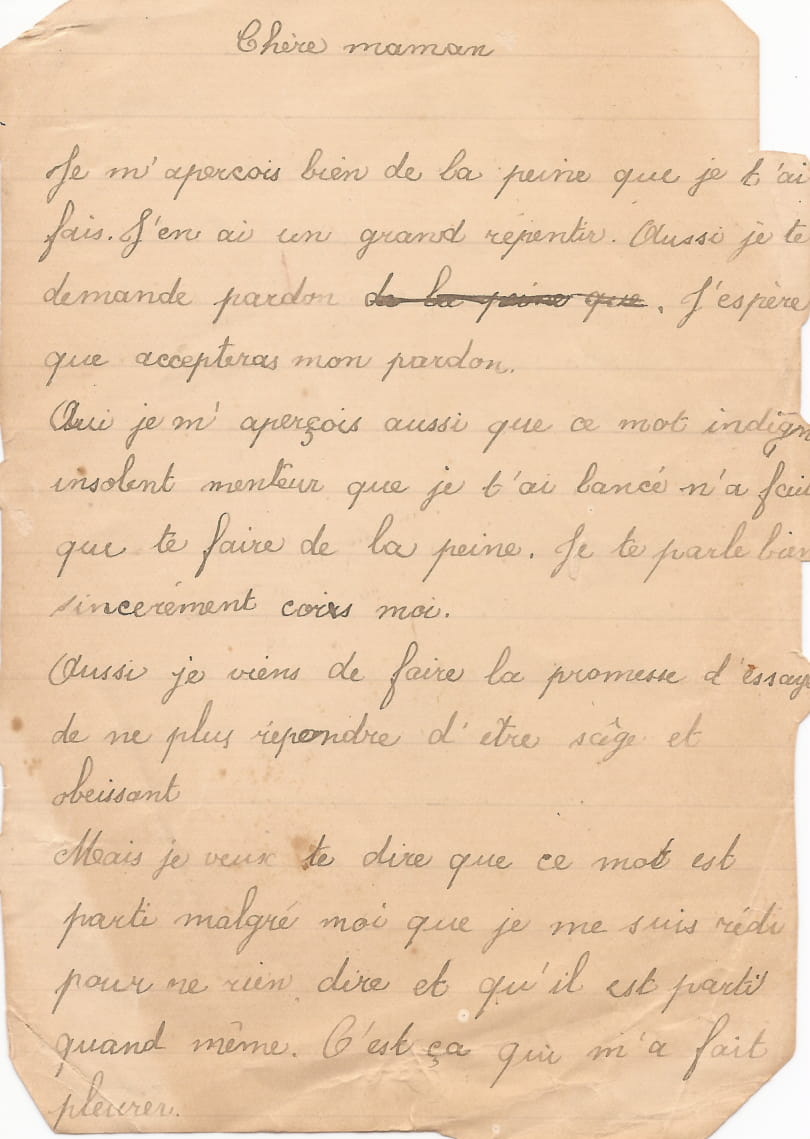 Chère maman
Je m'apercois bien de la peine que je t'ai
fais. J'en ai un grand répentir. Aussi je te
demande pardon de la peine que. J'espère
que accepteras mon pardon.
Oui je m'aperçois aussi que ce mot indign
insolent menteur que je t'ai lancé n'a fait
que te faire de la peine. Je te parle bien
sincerément coirs moi.
Aussi je viens de faire la promesse d'essaye
de ne plus répondre d'etre sage et
obeissant
Mais je veux te dire que ce mot est
parti malgré moi que je me suis rédi
pour ne rien dire et qu'il est parti
quand même. C'est ça qui m'a fait
pleurer.